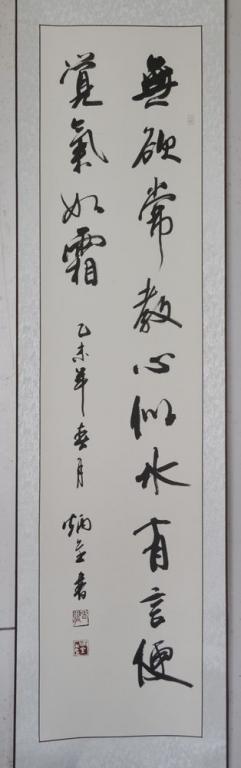 無欲常教心似水有言便
覺氣如霜
乙未年春月 炳 書